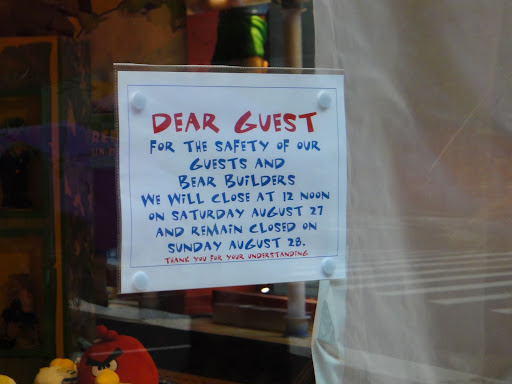 DEAR GUEST
FOR THE SAFETY OF OUR
GUESTS AND
BEAR BUILDERS
WE WILL CLOSE AT 12 NOON
ON SATURDAY AUGUST 27
AND REMAIN CLOSED ON
SUNDAY AUGUST 28.
THANK YOU FOR YOUR UNDERSTANDING